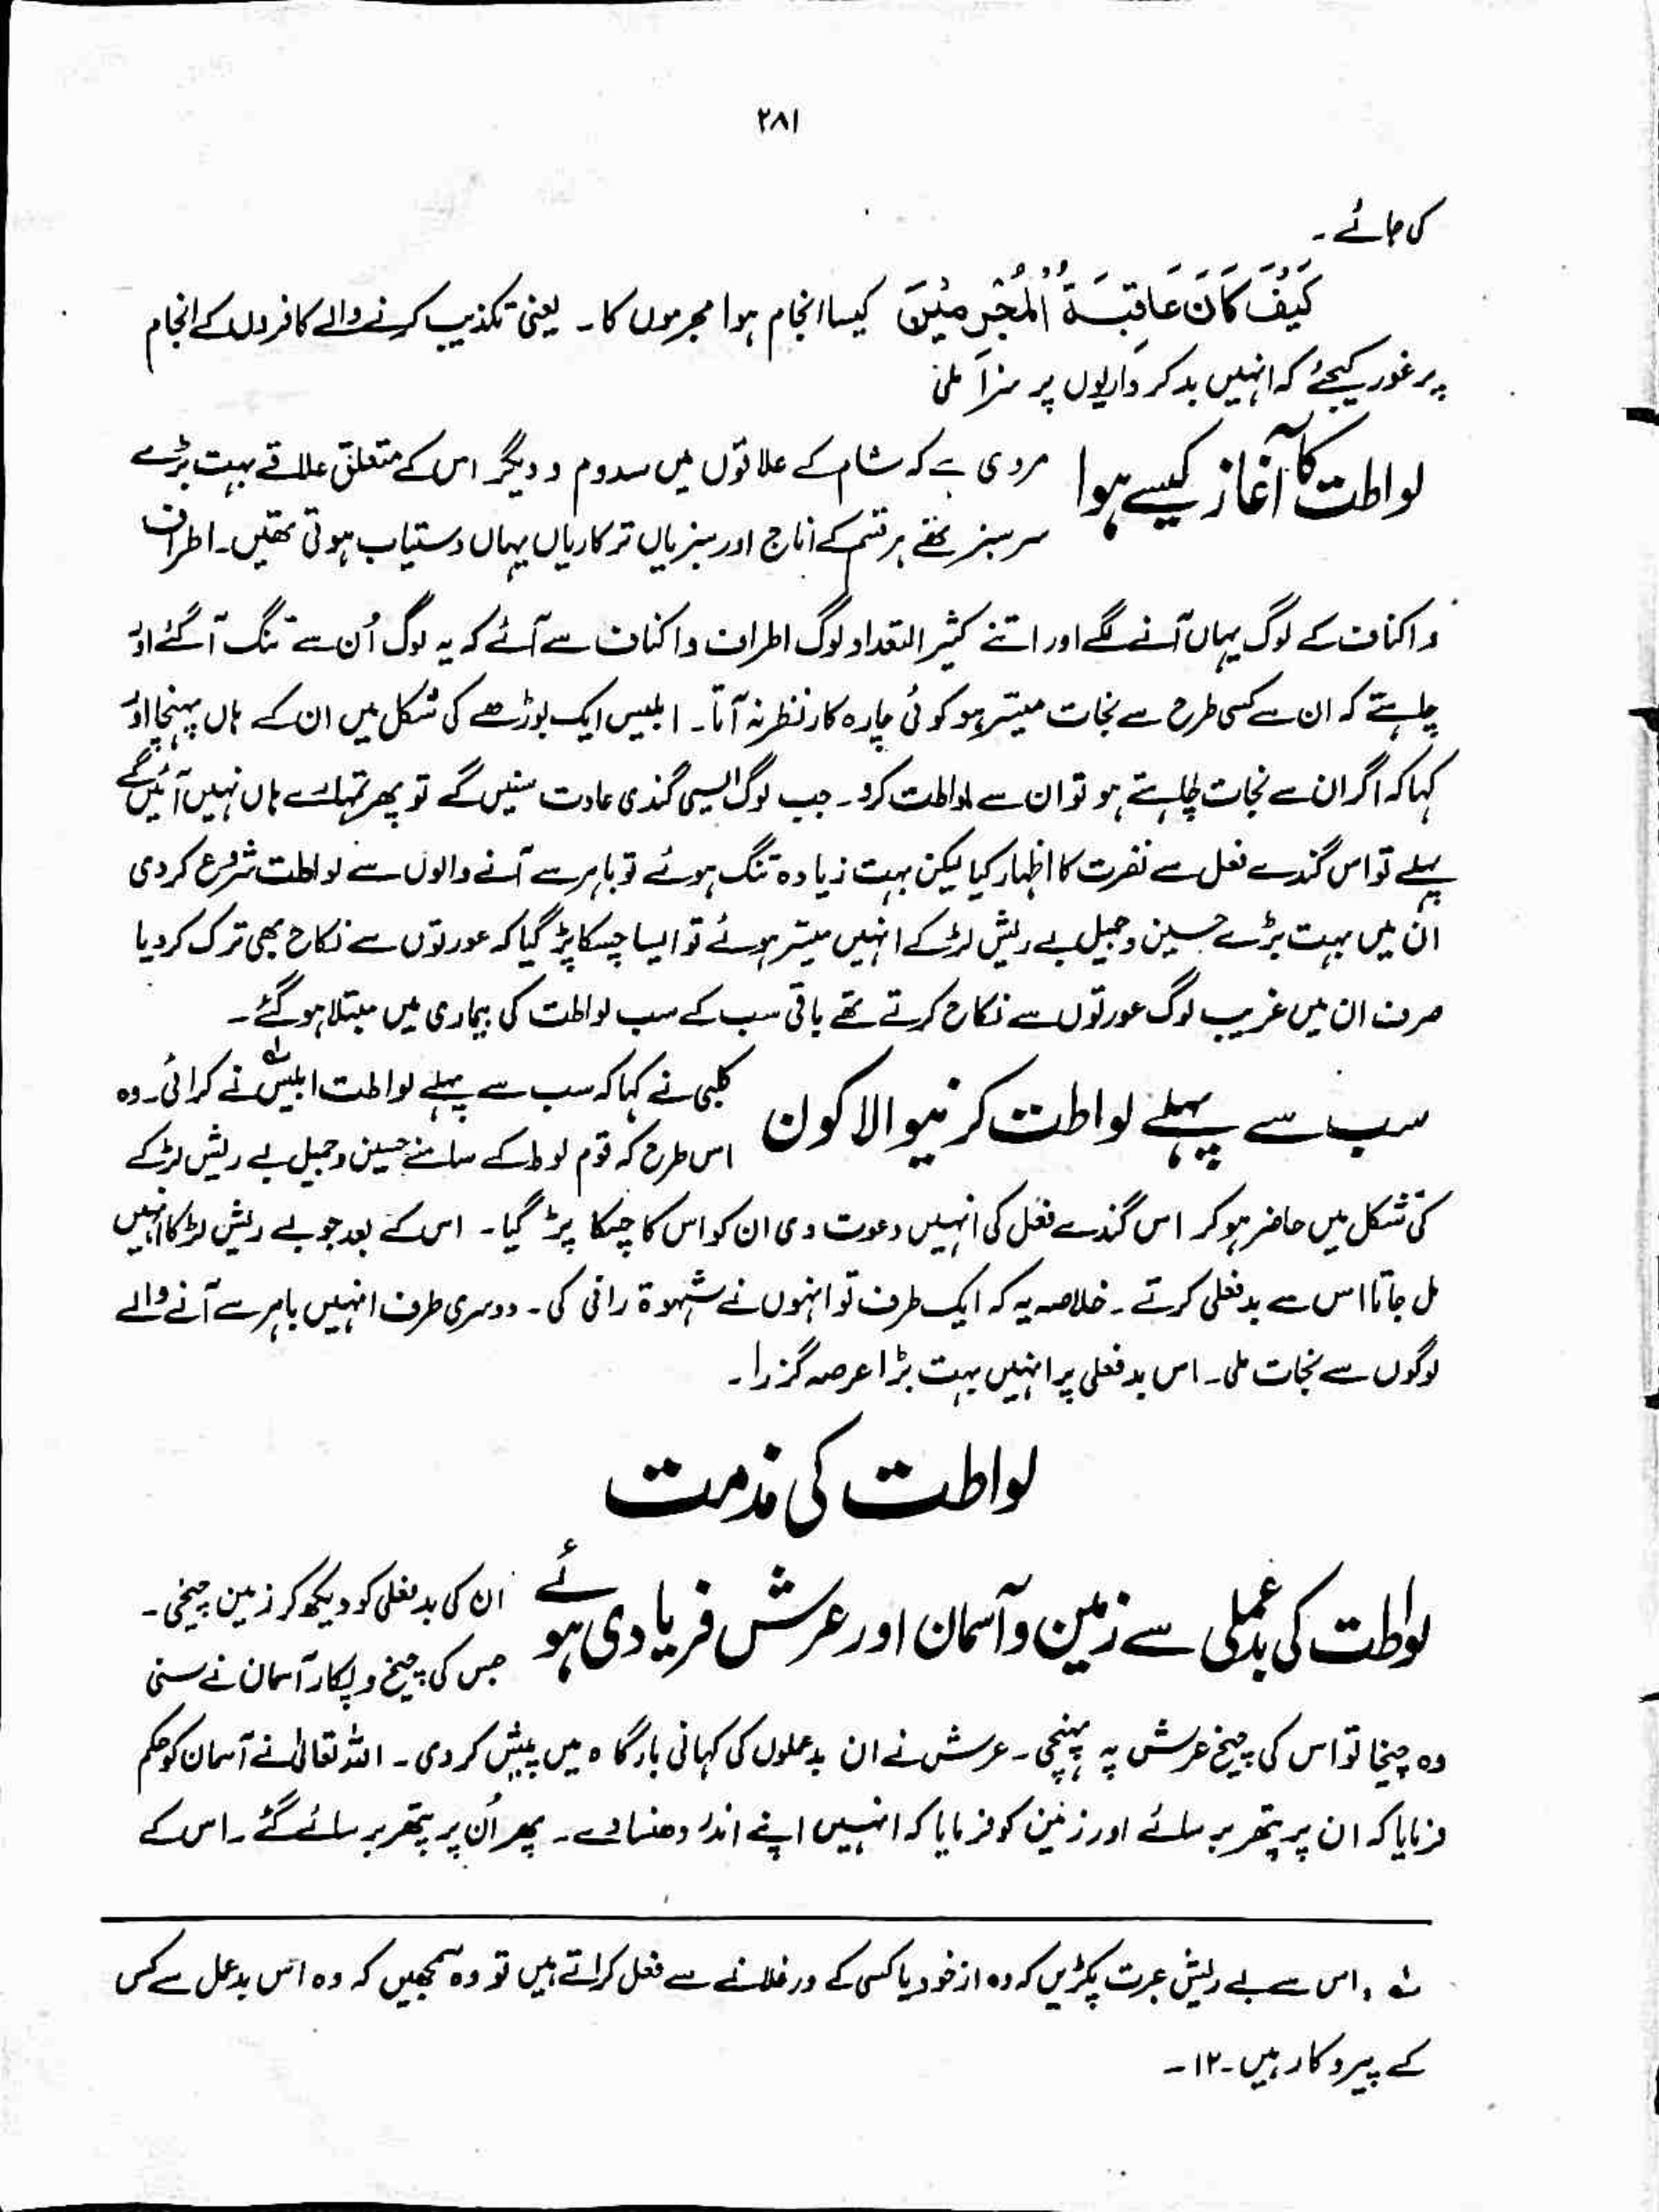 ۲۸۱
کی جائے۔
كَيْفَ كَانَ عَاقِبَةُ الْمُجْرِمِيْنَ کیسا انجام ہوا مجرموں کا۔ یعنی تکذیب کرنے والے کافروں کے انجام
پر غور کیجئے کہ انہیں بدکرداریوں پر سزا ملی
لواطت کا آغاز کیسے ہوا
مروی ہے کہ شام کے علاقوں میں سدوم و دیگر اس کے متعلق علاقے بہت بڑے
سرسبز تھے ہر قسم کے اناج اور سبزیاں ترکاریاں یہاں دستیاب ہوتی تھیں۔ اطراف
و اکناف کے لوگ یہاں آنے لگے اور اتنے کثیر التعداد لوگ اطراف و اکناف سے آئے کہ یہ لوگ اُن سے تنگ آگئے اور
چاہتے کہ ان سے کسی طرح سے نجات میسّر ہو کوئی چارہ کار نظر نہ آتا۔ ابلیس ایک بوڑھے کی شکل میں ان کے ہاں پہنچا اور
کہا کہ اگر ان سے نجات چاہتے ہو تو ان سے لواطت کرو۔ جب لوگ ایسی گندی عادت سنیں گے تو پھر تمہارے ہاں نہیں آئیں گے
پہلے تو اس گندے فعل سے نفرت کا اظہار کیا لیکن بہت زیادہ تنگ ہوئے تو باہر سے آنے والوں سے لواطت شروع کر دی
ان میں بہت بڑے حسین و جمیل بے ریش لڑکے انہیں میسّر ہوئے تو ایسا چسکا پڑ گیا کہ عورتوں سے نکاح بھی ترک کر دیا
صرف ان میں غریب لوگ عورتوں سے نکاح کرتے تھے باقی سب کے سب لواطت کی بیماری میں مبتلا ہو گئے۔
سب سے پہلے لواطت کرنیوالا کون
کلبی نے کہا کہ سب سے پہلے لواطت ابلیس لہ نے کرائی۔ وہ
اس طرح کہ قوم لوط کے سامنے حسین و جمیل بے ریش لڑکے
کی شکل میں حاضر ہو کر اس گندے فعل کی انہیں دعوت دی ان کو اس کا چسکا پڑ گیا۔ اس کے بعد جو بے ریش لڑکا انہیں
مل جاتا اس سے بدفعلی کرتے۔ خلاصہ یہ کہ ایک طرف تو انہوں نے شہوۃ رانی کی۔ دوسری طرف انہیں باہر سے آنے والے
لوگوں سے نجات ملی۔ اس بدفعلی پر انہیں بہت بڑا عرصہ گزرا۔
لواطت کی مذمت
لواطت کی بدعملی سے زمین و آسمان اور عرش فریادی ہوئے
ان کی بدفعلی کو دیکھ کر زمین چیخی۔
جس کی چیخ و پکار آسمان نے سنی
وہ چیخا تو اس کی چیخ عرش پہ پہنچی۔ عرش نے ان بدعملوں کی کہانی بارگاہ میں پیش کر دی۔ اللہ تعالیٰ نے آسمان کو حکم
فرمایا کہ ان پر پتھر برسائے اور زمین کو فرمایا کہ انہیں اپنے اندر دھنسا دے۔ پھر اُن پر پتھر برسائے گئے۔ اس کے
لہ ، اس سے بے ریش عبرت پکڑیں کہ وہ از خود یا کسی کے ورغلانے سے فعل کراتے ہیں تو وہ سمجھیں کہ وہ اس بدعمل سے کس
کے پیروکار ہیں۔ ۱۲۔